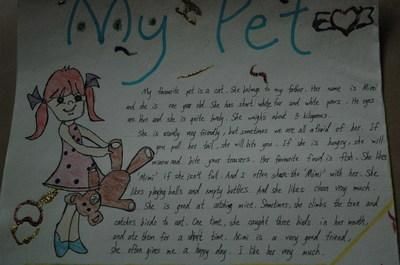 My Pet
My favourite pet is a cat. She belongs to my father. Her name is Mimi
and she is one year old. She has short white fur and white paws. He eyes
are and she is quite body. She weighs about 3 kilograms.
She is usually very friendly, but sometimes we are all afraid of her. If
you pull her tail, she will bite you. If she is hungry, she will
miaow and bite your trousers. Her favourite food is fish. She likes
"Mimi" if she isn't full. And I often share the "Mimi" with her. She
likes playing balls and empty bottles. And she likes clean very much.
She is good at catching mice. Sometimes, she climbs the tree and
catches birds to eat. One time, she caught three birds in her mouth,
and ate them for a short time. Mimi is a very good friend,
she often gives me a happy day. I like her very much.